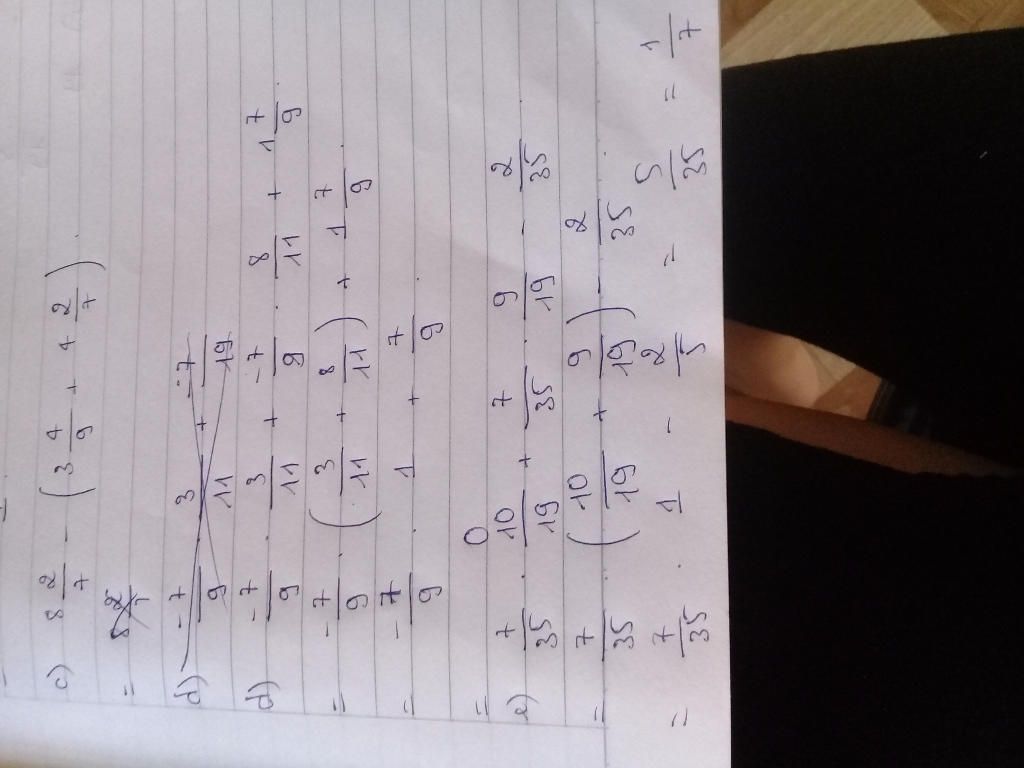 c) 8 2/7 - (3 4/9 + 4 2/7)
=
d) -7/9 3/11 + -7/19
d) -7/9 . 3/11 + -7/9 . 8/11 + 1 7/9
= -7/9 . (3/11 + 8/11) + 1 7/9
= -7/9 . 1 + 7/9
= 0
e) 7/35 . 10/19 + 7/35 . 9/19 - 2/35
= 7/35 . (10/19 + 9/19) - 2/35
= 7/35 . 1 - 2/5 = 5/35 = 1/7